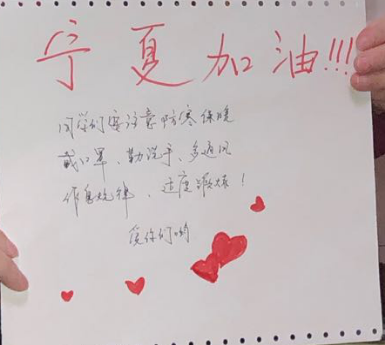 宁夏加油!!!
同学们要注意防寒保暖
戴口罩、勤洗手、多通风
作息规律、适度锻炼!
爱你们哟